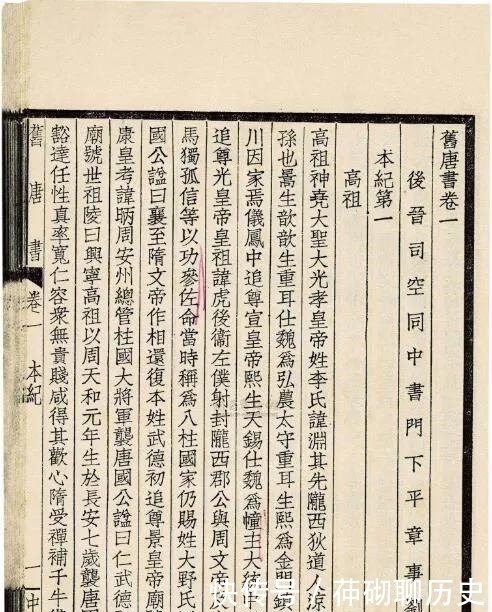 舊唐書卷一
後晉司空同中書門下平章事
本紀第一
高祖
高祖神堯大聖大光孝皇帝姓李氏諱淵其先隴西狄道人涼
孫也暠生歆歆生重耳仕魏爲弘農太守重耳生熙爲金門鎮
川因家焉儀鳳中追尊宣皇帝熙生天錫仕魏爲幢主大
追尊光皇帝皇祖諱虎後衞左僕射封隴西郡公與周文帝
馬獨孤信等以功參佐命當時稱爲八柱國家仍賜姓大野氏
國公諡曰襄至隋文帝作相還復本姓武德初追尊景皇帝廟
康皇考諱昞周安州總管柱國大將軍襲唐國公諡曰仁武德
廟號世祖陵曰興寧高祖以周天和元年生於長安七歲襲唐
豁達任性真率寬仁容衆無貴賤咸得其歡心隋受禪補千牛
舊唐書 卷一 本紀 一 中
快传号:茽砌聊历史